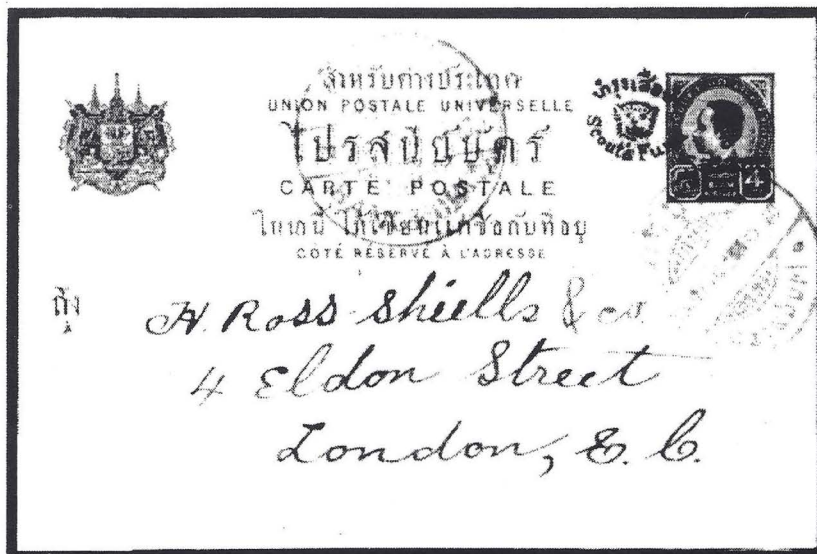 สำหรับต่างประเทศ
UNION POSTALE UNIVERSELLE
ไปรสนีย์บัตร์
CARTE POSTALE
ในหน้านี้ ให้เขียนแต่ชื่อกับที่อยู่
CÔTÉ RÉSERVÉ À L'ADRESSE
บำรุงเสือป่า
Scout's Fund
4
ถึง
H. Ross Shiells & co
4 Eldon Street
London, E. C.